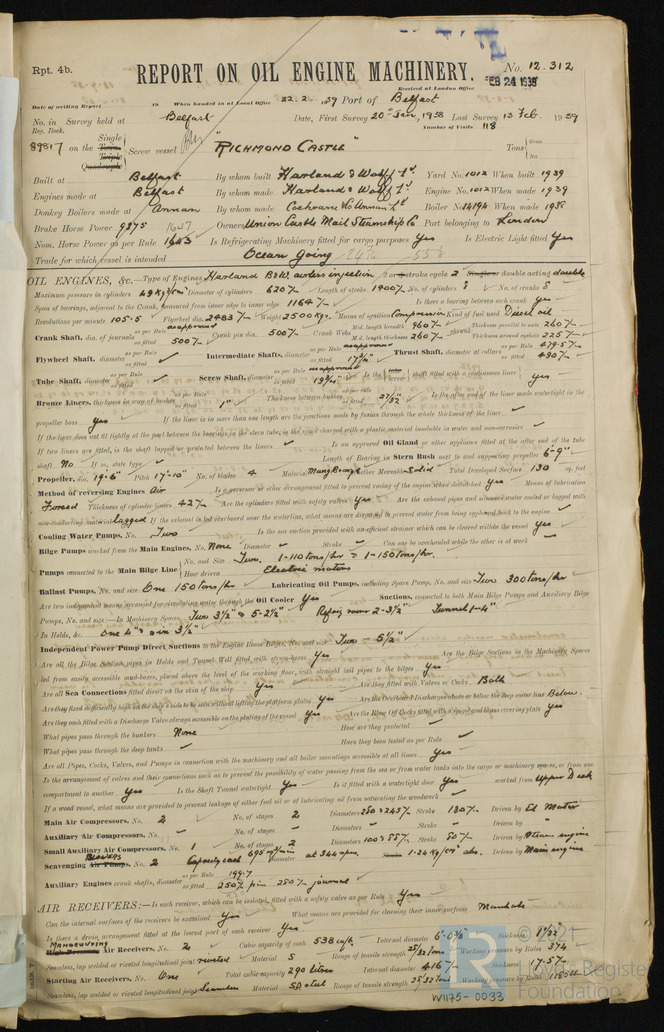 Rpt. 4b.
REPORT ON OIL ENGINE MACHINERY.
No. 12.312
Received at London Office
FEB 24 1939
Date of writing Report 19 When handed in at Local Office 22.2.1939 Port of Belfast
No. in Survey held at Belfast Date, First Survey 20th Jan, 1938 Last Survey 13 Feb. 1939
Reg. Book. Number of Visits 118
89817 on the Single Triple Quadruple Screw vessel "RICHMOND CASTLE" Tons Gross Net
Built at Belfast By whom built Harland & Wolff Ld. Yard No. 1012 When built 1939
Engines made at Belfast By whom made Harland & Wolff Ld. Engine No. 1012 When made 1939
Donkey Boilers made at Annan By whom made Cochran & Co Annan Ld Boiler No. 14194 When made 1938
Brake Horse Power 9875 Owners Union Castle Mail Steamship Co Port belonging to London
Nom. Horse Power as per Rule 1643 Is Refrigerating Machinery fitted for cargo purposes Yes Is Electric Light fitted Yes
Trade for which vessel is intended Ocean Going
OIL ENGINES, &c.—Type of Engines Harland B&W airless injection 2 or 4 stroke cycle 2 Single or double acting double
Maximum pressure in cylinders 49 kg/cm² Diameter of cylinders 620 m/m Length of stroke 1400 m/m No. of cylinders 8 No. of cranks 8
Span of bearings, adjacent to the Crank, measured from inner edge to inner edge 1164 m/m Is there a bearing between each crank yes
Revolutions per minute 105.5 Flywheel dia. 2483 m/m Weight 2500 kgs. Means of ignition Compression Kind of fuel used Diesel oil
Crank Shaft, dia. of journals as per Rule as approved as fitted 500 m/m Crank pin dia. 500 m/m Crank Webs Mid. length breadth 960 m/m Mid. length thickness 260 m/m shrunk Thickness parallel to axis 260 m/m Thickness around eyehole 225 m/m
Flywheel Shaft, diameter as per Rule as fitted Intermediate Shafts, diameter as per Rule as approved as fitted 17¾" Thrust Shaft, diameter at collars as per Rule 479.57 m/m as fitted 490 m/m
Tube Shaft, diameter as per Rule as fitted Screw Shaft, diameter as per Rule as approved as fitted 19¾" Is the tube screw shaft fitted with a continuous liner yes
Bronze Liners, thickness in way of bushes as per Rule as fitted 1" Thickness between bushes as per Rule as fitted 27/32" Is the after end of the liner made watertight in the
propeller boss Yes If the liner is in more than one length are the junctions made by fusion through the whole thickness of the liner
If the liner does not fit tightly at the part between the bearings in the stern tube, is the space charged with a plastic material insoluble in water and non-corrosive
If two liners are fitted, is the shaft lapped or protected between the liners Is an approved Oil Gland or other appliance fitted at the after end of the tube
shaft No If so, state type Length of Bearing in Stern Bush next to and supporting propeller 6'-9"
Propeller, dia. 19'-6" Pitch 17'-10" No. of blades 4 Material Mang Bronze whether Moveable Solid Total Developed Surface 130 sq. feet
Method of reversing Engines Air Is a governor or other arrangement fitted to prevent racing of the engine when declutched Yes Means of lubrication
Forced Thickness of cylinder liners 42 m/m Are the cylinders fitted with safety valves Yes Are the exhaust pipes and silencers water cooled or lagged with
non-conducting material lagged If the exhaust is led overboard near the waterline, what means are arranged to prevent water from being syphoned back to the engine
Cooling Water Pumps, No. Two Is the sea suction provided with an efficient strainer which can be cleared within the vessel Yes
Bilge Pumps worked from the Main Engines, No. None Diameter Stroke Can one be overhauled while the other is at work
Pumps connected to the Main Bilge Line No. and Size Two. 1-110 tons/hr & 1-150 tons/hr.
How driven Electric motors
Ballast Pumps, No. and size One 150 tons/hr Lubricating Oil Pumps, including Spare Pump, No. and size Two 300 tons/hr
Are two independent means arranged for circulating water through the Oil Cooler Yes Suctions, connected to both Main Bilge Pumps and Auxiliary Bilge
Pumps, No. and size:—In Machinery Spaces Two 3½" & 5-2½" Refrig. room 2-3½" Tunnel 1-4"
In Holds, &c. One 4" & six 3½"
Independent Power Pump Direct Suctions to the Engine Room Bilges, No. and size Two - 5½"
Are all the Bilge Suction pipes in Holds and Tunnel Well fitted with strum-boxes Yes Are the Bilge Suctions in the Machinery Spaces
led from easily accessible mud-boxes, placed above the level of the working floor, with straight tail pipes to the bilges Yes
Are all Sea Connections fitted direct on the skin of the ship Yes Are they fitted with Valves or Cocks Both
Are they fixed sufficiently high on the ship's side to be seen without lifting the platform plates Yes Are the Overboard Discharges above or below the deep water line Below.
Are they each fitted with a Discharge Valve always accessible on the plating of the vessel Yes Are the Blow Off Cocks fitted with a spigot and brass covering plate Yes
What pipes pass through the bunkers None How are they protected
What pipes pass through the deep tanks Have they been tested as per Rule
Are all Pipes, Cocks, Valves, and Pumps in connection with the machinery and all boiler mountings accessible at all times Yes
Is the arrangement of valves and their connections such as to prevent the possibility of water passing from the sea or from water tanks into the cargo or machinery spaces, or from one
compartment to another Yes Is the Shaft Tunnel watertight Yes Is it fitted with a watertight door Yes worked from Upper Deck
If a wood vessel, what means are provided to prevent leakage of either fuel oil or of lubricating oil from saturating the woodwork
Main Air Compressors, No. 2 No. of stages 2 Diameters 280 & 245 m/m Stroke 130 m/m Driven by El Motor
Auxiliary Air Compressors, No. No. of stages Diameters Stroke Driven by
Small Auxiliary Air Compressors, No. 1 No. of stages 2 Diameters 100 & 88 m/m Stroke 80 m/m Driven by Steam engine
Scavenging Air Pumps, BLOWERS No. 2 Capacity each 695 m³/min Diameter at 344 rpm Stroke 1.24 kg/cm² abs. Driven by Main engine
Auxiliary Engines crank shafts, diameter as per Rule 199.7 as fitted 250 m/m pin 280 m/m journal
AIR RECEIVERS:—Is each receiver, which can be isolated, fitted with a safety valve as per Rule Yes
Can the internal surfaces of the receivers be examined Yes What means are provided for cleaning their inner surfaces Manhole
Is there a drain arrangement fitted at the lowest part of each receiver Yes
MANOEUVRING High Pressure Air Receivers, No. 2 Cubic capacity of each 538 cu ft. Internal diameter thickness
Seamless, lap welded or riveted longitudinal joint riveted Material S Range of tensile strength Working pressure by Rules 374
Starting Air Receivers, No. One Total cubic capacity 290 litres Internal diameter 416 m/m thickness 17.5 m/m
Seamless, lap welded or riveted longitudinal joint Seamless Material S steel Range of tensile strength Working pressure by Rules
© 2021
Lloyd's Register
Foundation
W1175-0033